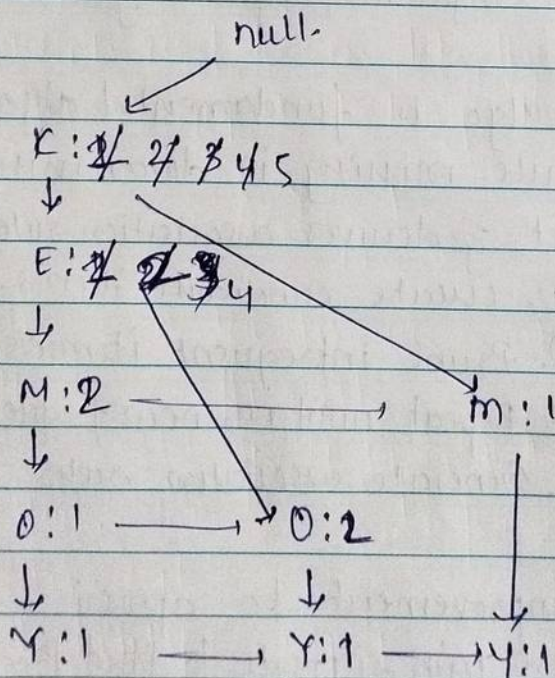 null.
K : 1 2 3 4 5
E : 1 2 3 4
M : 2 m : 1
O : 1 O : 2
Y : 1 Y : 1 Y : 1